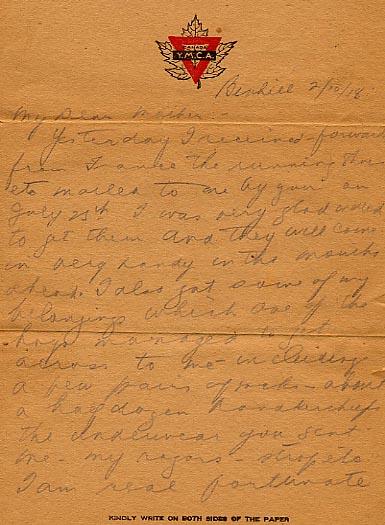 CANADIAN
Y.M.C.A.
Bexhill 2/10/18
My Dear Mother:-
Yesterday I received forward
from France the running shoes
etc mailed to me by you on
July 25th I was very glad indeed
to get them and they will come
in very handy in the months
ahead. I also got some of my
belongings which one of the
boys managed to get
across to me - including
a few pairs of socks - about
a half dozen handkerchiefs
the underwear you sent
me - my razors - strop etc
I am real fortunate
KINDLY WRITE ON BOTH SIDES OF THE PAPER